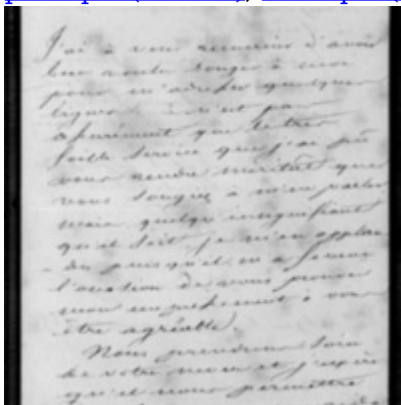 J'ai à vous remercier d'avoir
bien voulu songer à moi
pour m'adresser quelques
lignes ce n'est pas
assurément que le très
faible service que j'ai pu
vous rendre méritât que
vous songiez à m'en parler
mais quelqu'insignifiant
qu'il soit, je m'en applau-
-dis puisqu'il m'a fourni
l'occasion de vous prouver
mon empressement à vous
être agréable.
Nous prendrons soin
de votre et j'espère
qu'il nous permettra